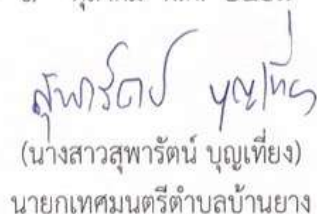 สุพารัตน์ บุญเที่ยง
(นางสาวสุพารัตน์ บุญเที่ยง)
นายกเทศมนตรีตำบลบ้านยาง